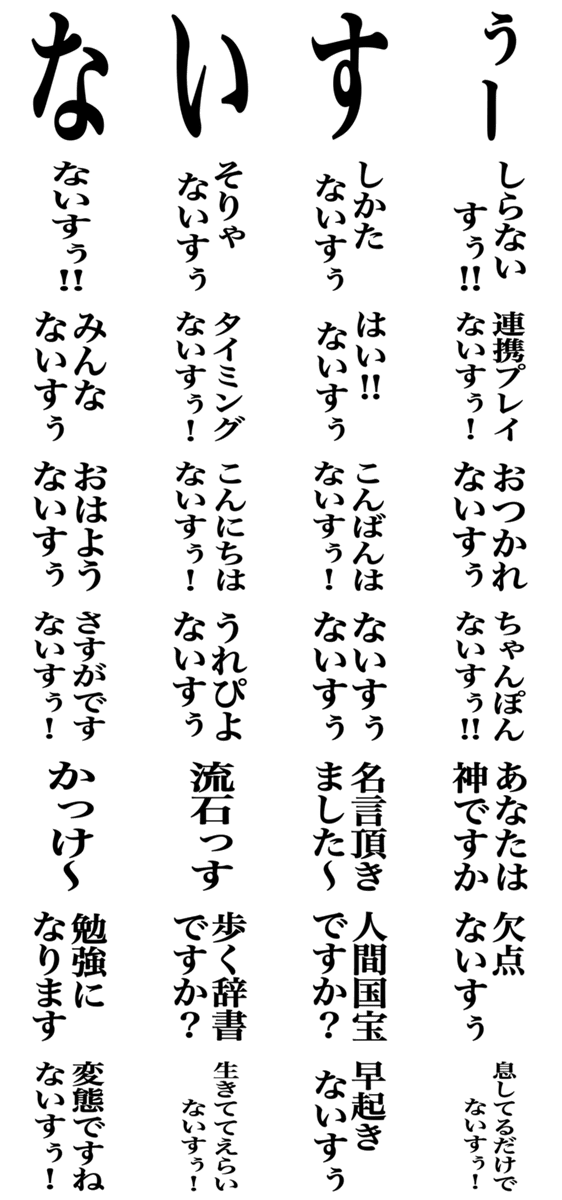 な
い
す
うー
ないすぅ!!
そりゃ
ないすぅ
しかた
ないすぅ
しらない
すぅ!!
みんな
ないすぅ
タイミング
ないすぅ！
はい!!
ないすぅ
連携プレイ
ないすぅ！
おはよう
ないすぅ
こんにちは
ないすぅ！
こんばんは
ないすぅ！
おつかれ
ないすぅ
さすがです
ないすぅ！
うれぴよ
ないすぅ
ないすぅ
ないすぅ
ちゃんぽん
ないすぅ!!
かっけ〜
流石っす
名言頂き
ました〜
あなたは
神ですか
勉強に
なります
歩く辞書
ですか？
人間国宝
ですか？
欠点
ないすぅ
変態ですね
ないすぅ！
生きててえらい
ないすぅ！
早起き
ないすぅ
息してるだけで
ないすぅ！